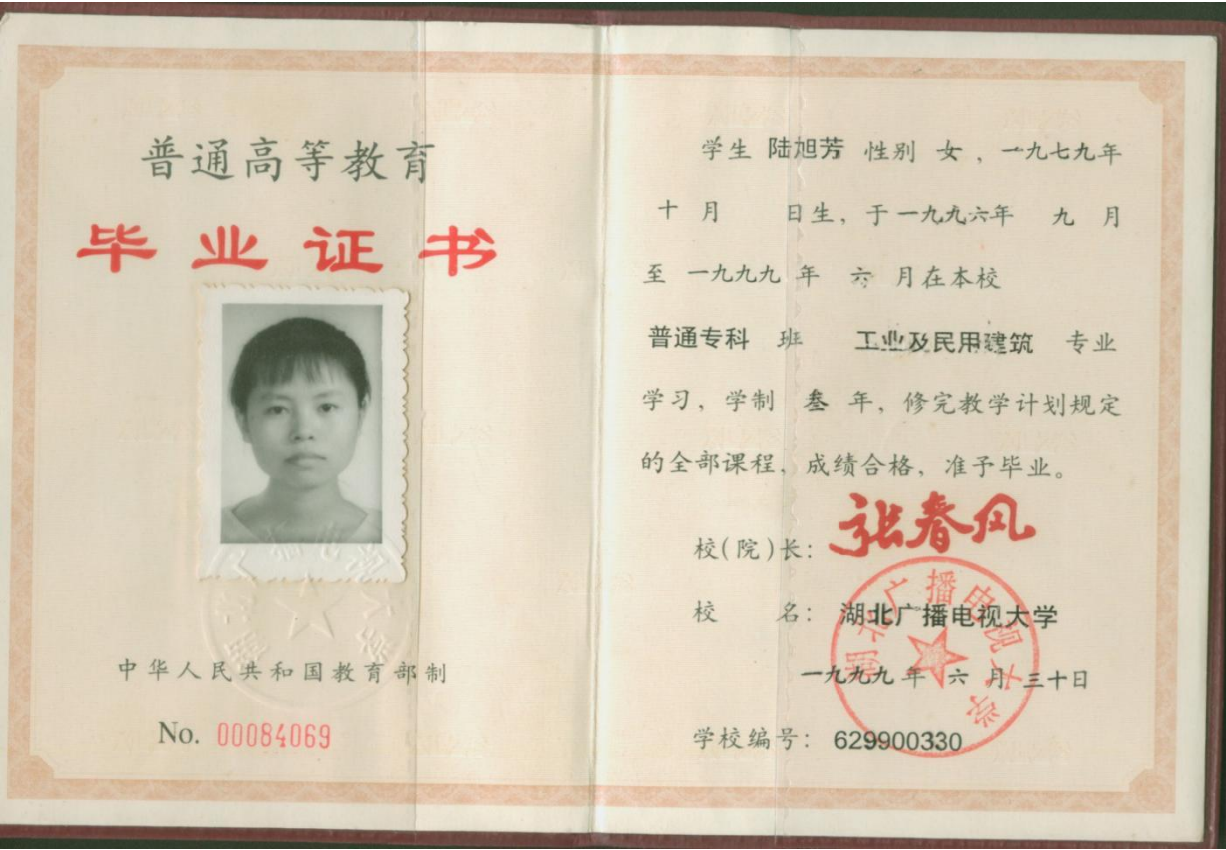 普通高等教育
毕业证书
中华人民共和国教育部制
No. 00084069
学生 陆旭芳 性别 女，一九七九年
十月 日生，于一九九六年 九月
至 一九九九年 六月在本校
普通专科 班 工业及民用建筑 专业
学习，学制 叁 年，修完教学计划规定
的全部课程，成绩合格，准予毕业。
校(院)长：张春风
校 名：湖北广播电视大学
一九九九年 六月三十日
学校编号：629900330
湖北广播电视大学